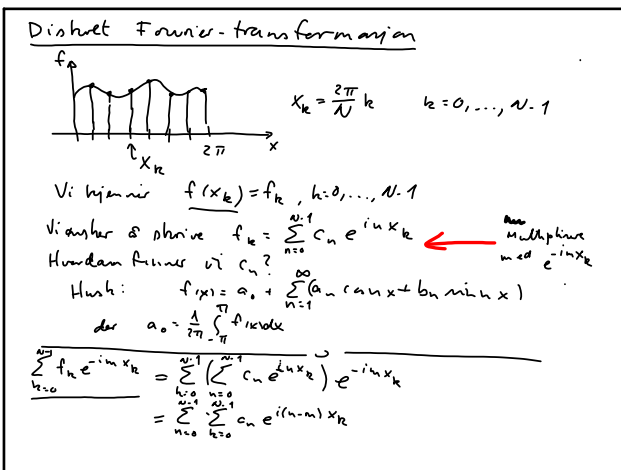 Diskret Fourier-transformasjon
f
x_k = 2π/N k   k = 0, ..., N-1
x_k   2π   x
Vi kjenner f(x_k) = f_k, k=0, ..., N-1
Vi ønsker å skrive f_k = Σ_{n=0}^{N-1} c_n e^{inx_k}
Multiplisere
med e^{-imx_k}
Hvordan finner vi c_n?
Husk: f(x) = a_0 + Σ_{n=1}^{∞} (a_n cos nx + b_n sin nx)
der a_0 = 1/2π ∫_{-π}^{π} f(x)dx
Σ_{k=0}^{N-1} f_k e^{-imx_k} = Σ_{k=0}^{N-1} (Σ_{n=0}^{N-1} c_n e^{inx_k}) e^{-imx_k}
= Σ_{n=0}^{N-1} Σ_{k=0}^{N-1} c_n e^{i(n-m)x_k}